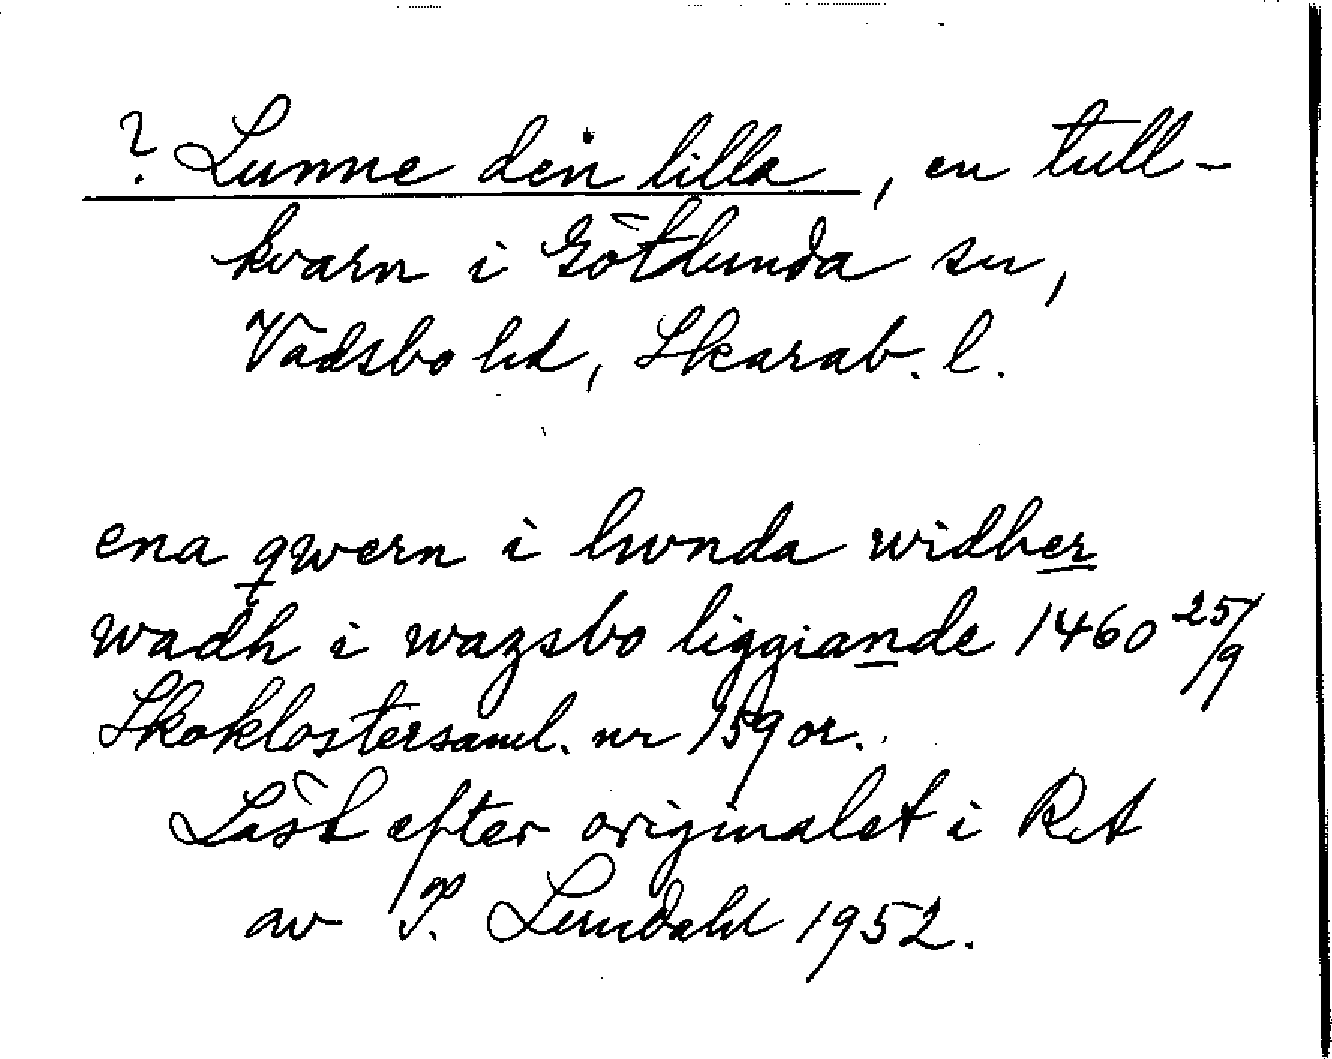 ? Lunne den lilla, en tull-
kvarn i Götlunda sn,
Vadsbo hd, Skarab. l.
ena qwern i lwnda widher
wadh i wazsbo liggiande 1460 25/9
Skoklostersaml. nr 159 or.
Läst efter originalet i RA
av P. Lundahl 1952.